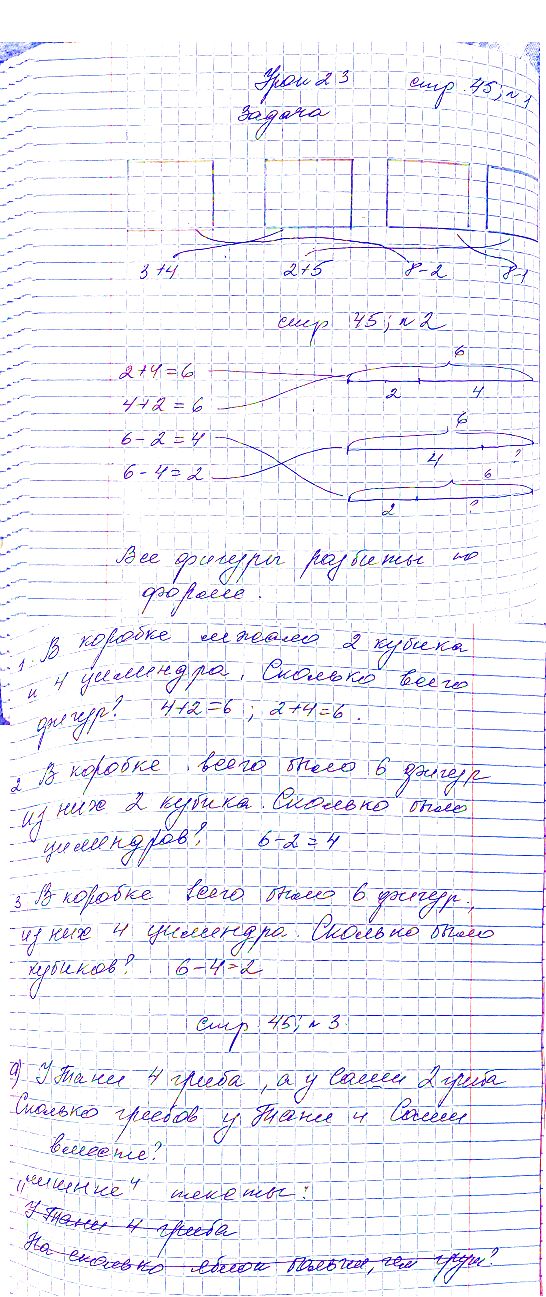 Урок 23 стр 45; №1
Задача
3+4 2+5 8-2 8-1
стр 45; №2
2+4=6
4+2=6
6-2=4
6-4=2
6
2 4
6
4 ?
6
2 ?
Все фигуры разбиты по
форме.
1 В коробке лежало 2 кубика
и 4 цилиндра. Сколько всего
фигур? 4+2=6; 2+4=6.
2 В коробке всего было 6 фигур
из них 2 кубика. Сколько было
цилиндров? 6-2=4
3 В коробке всего было 6 фигур,
из них 4 цилиндра. Сколько было
кубиков? 6-4=2
стр 45; №3
а) У Тани 4 гриба, а у Саши 2 гриба
Сколько грибов у Тани и Саши
вместе?
"лишние" тексты:
У Тани 4 гриба
На сколько яблок больше, чем груш?